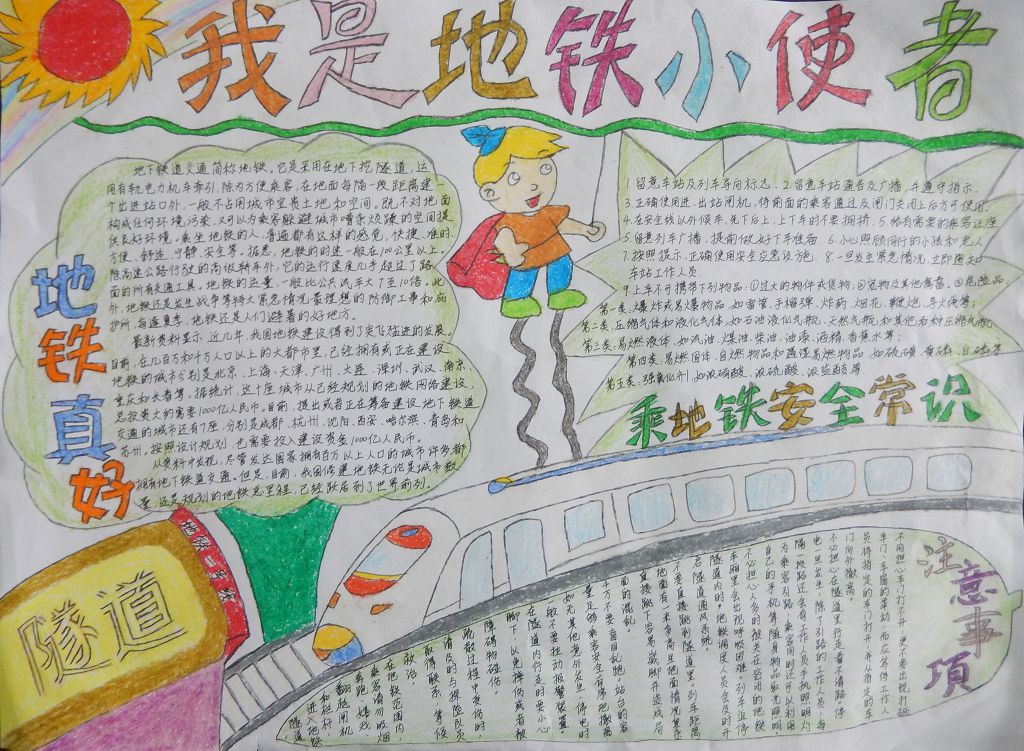 我是地铁小使者
地铁真好
地下铁道交通简称地铁。它是采用在地下挖隧道，运
用有轨电力机车牵引，除为方便乘客，在地面每隔一段距离建一
个出进站口外，一般不占用城市宝贵土地和空间。既不对地面
构成任何环境污染，又可以为乘客躲避城市嘈杂
良好环境。乘坐地铁的人，普遍都有这样的感觉，快捷、准时、
方便、舒适、宁静、安全等。据悉，地铁的时速一般在100公里以上。
除高速公路行驶的高级轿车外，它的运行速度几乎超过了路
面的所有交通工具。地铁的运量，一般比公共汽车大7至10倍。此
外，地铁还是发生战争等特大紧急情况最理想的防御工事和庇
护所，每逢夏季，地铁还是人们避暑的好地方。
最新资料显示，近几年，我国地铁建设得到了突飞猛进的发展。
目前，在几百万和千万人口以上的大都市里，已经拥有或正在建设
地铁的城市分别是北京、上海、天津、广州、大连、深圳、武汉、南京、
重庆和长春等。据统计，这十座城市从已经规划的地铁网络建设，
总投资大约需要1000亿人民币。目前，提出或者正在筹备建设地下铁道
交通的城市还有7座，分别是成都、杭州、沈阳、西安、哈尔滨、青岛和
苏州。按照设计规划，也需要投入建设资金1000亿人民币。
从资料中发现，尽管发达国家拥有百万以上人口的城市许多都
拥有地下铁道交通。但是，目前，我国修建地铁无论是城市数
量，还是规划的地铁总里程，已经跃居到了世界前列。
1.留意车站及列车导向标志。2.留意车站通告及广播，并遵守指示。
3.正确使用进、出站闸机，待前面的乘客通过及闸门关闭上后方可使用。
4.在安全线以外候车，先下后上，上下车时不要拥挤。5.给有需要的乘客让座
5.留意列车广播，提前做好下车准备。6.小心照顾同行的小孩和老人
7.按照提示，正确使用安全应急设施。8.一旦发生紧急情况，立即通知
车站工作人员。
9.上车不可携带下列物品：①过大的物件或货物；②宠物及其他禽畜。③危险品。
第一类，爆炸或易爆物品，如雷管、手榴弹、炸药、烟花、鞭炮、导火索等；
第二类，压缩气体和液化气体，如石油液化气瓶、天然气瓶和其他各种压缩气瓶、
第三类，易燃液体，如汽油、煤油、柴油、油漆、酒精、香蕉水等；
第四类，易燃固体、自燃物品和遇湿易燃物品，如硫磺、黄磷、白磷等
第五类，强氧化剂，如浓硝酸、浓硫酸、浓盐酸等
乘地铁安全常识
地铁一号线
隧道
注意事项
不用担心车门打不开，更不要出现打砸
车门、车窗的举动，而应等待工作人
员将指定的车门打开，并从指定的车
门向外撤离。
不必担心在隧道里行走看不清路。停
电一旦发生，除了引路的工作人员，每
隔一段路还会有工作人员手执照明灯
为乘客引路。乘客同时还可以利用
自己的手机等随身物品取光照明。
不必担心人多的被关在密闭的地铁
车厢里会出现呼吸困难。列车迫停
隧道内时，地铁调度人员会及时开
启隧道通风系统。
不要直接跳到隧道里。列车距离
地面有一米多高，且地面情况复杂
直接跳下容易崴脚并造成后
面的混乱。